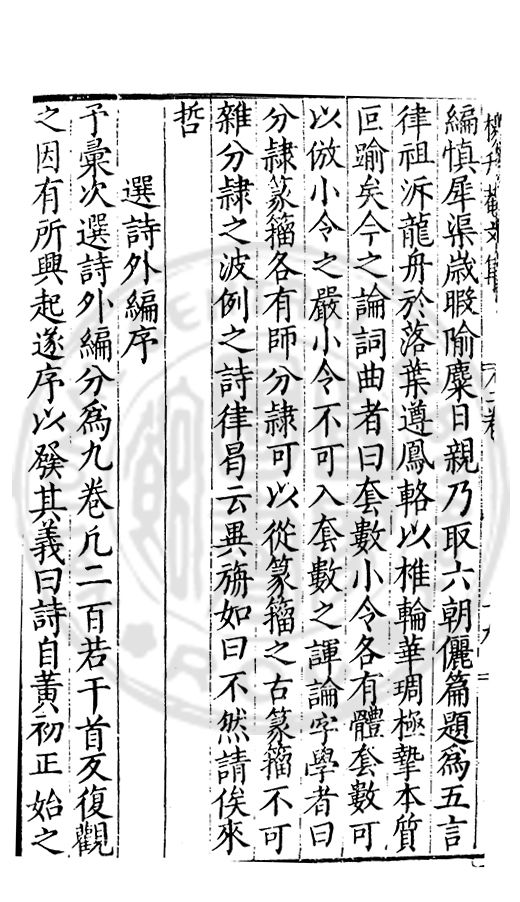 編慎犀渠歲暇隃麋日親乃取六朝儷篇題為五言
律祖泝龍舟於落葉遵鳳輅以椎輪華琱極摯本質
叵踰矣今之論詞曲者曰套數小令各有體套數可
以倣小令之嚴小令不可入套數之諢論字學者曰
分隷篆籀各有師分隷可以從篆籀之古篆籀不可
雜分隷之波例之詩律曷云異旃如曰不然請俟來
哲
選詩外編序
予彙次選詩外編分為九卷凢二百若干首反復觀
之因有所興起遂序以發其義曰詩自黃初正始之